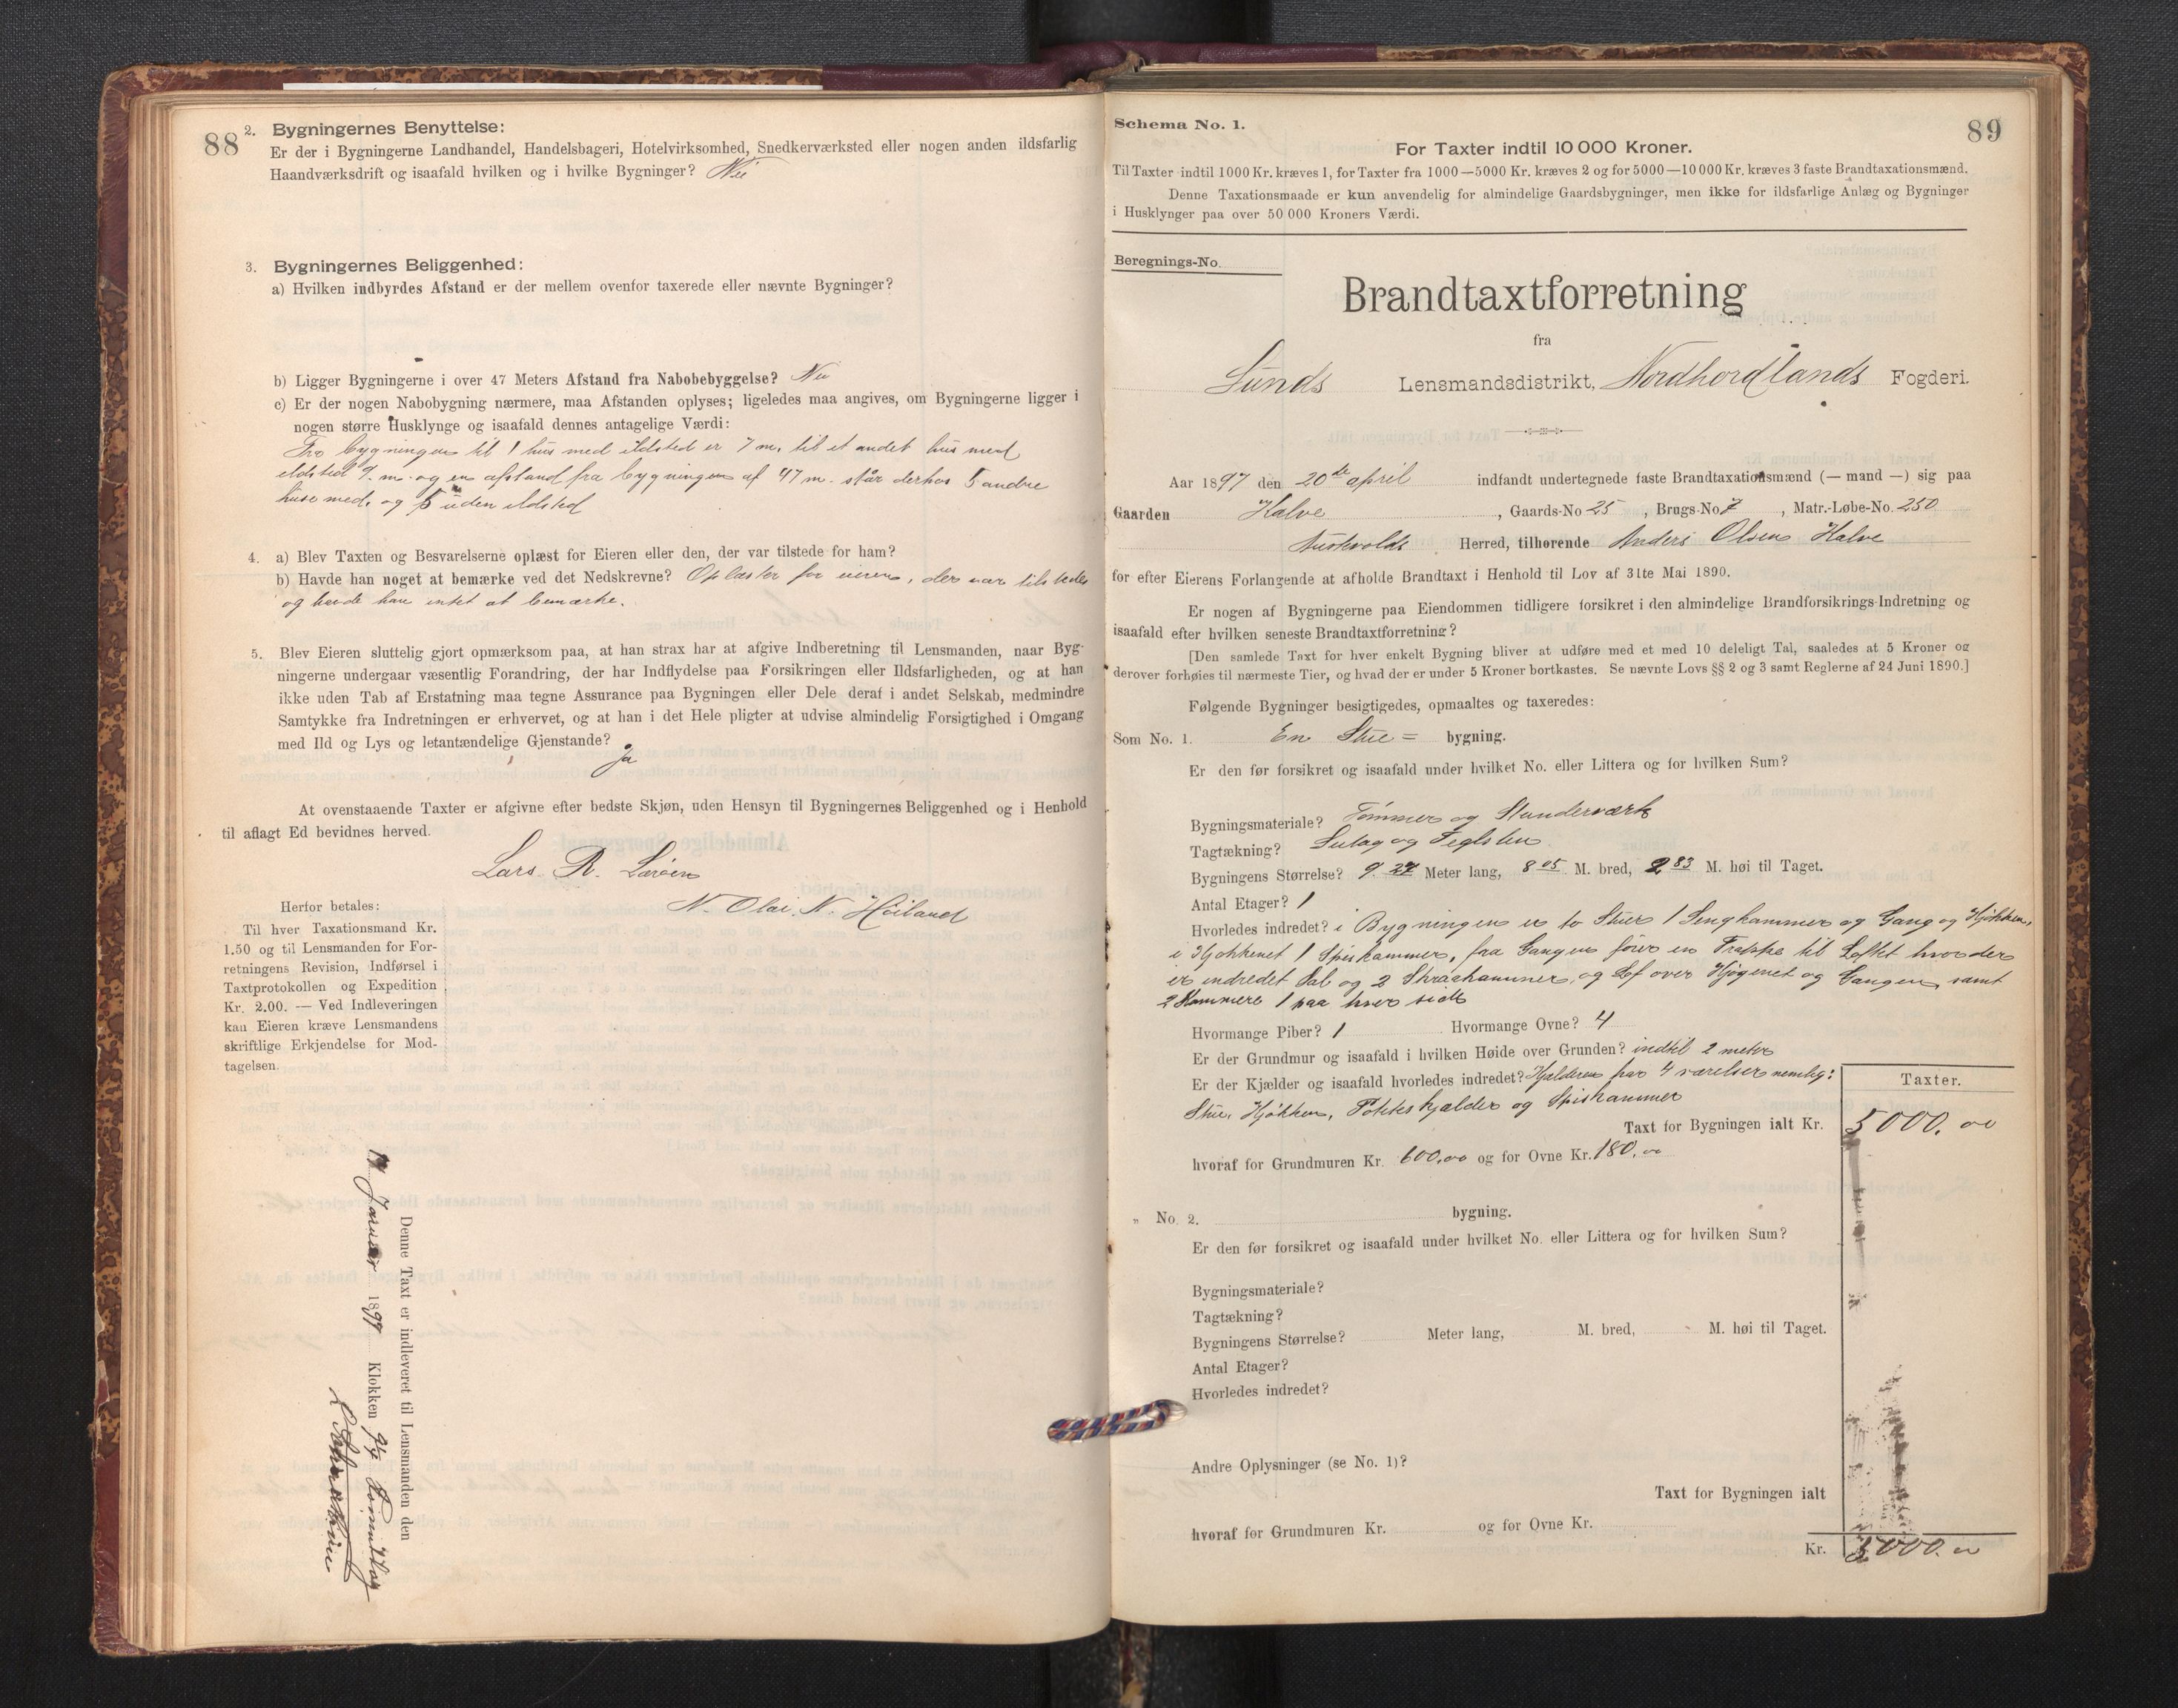 88
2. Bygningernes Benyttelse:
Er der i Bygningerne Landhandel, Handelsbageri, Hotelvirksomhed, Snedkerværksted eller nogen anden ildsfarlig
Haandværksdrift og isaafald hvilken og i hvilke Bygninger? Nei
3. Bygningernes Beliggenhed:
a) Hvilken indbyrdes Afstand er der mellem ovenfor taxerede eller nævnte Bygninger?
b) Ligger Bygningerne i over 47 Meters Afstand fra Nabobebyggelse? Nei
c) Er der nogen Nabobygning nærmere, maa Afstanden oplyses; ligeledes maa angives, om Bygningerne ligger i
nogen større Husklynge og isaafald dennes antagelige Værdi:
Fra bygningen til 1 hus med ildsted er 7 m. til et andet hus med
ildsted 9. m. og en afstand fra bygningen af 47 m. står derhos 5 andre
huse med. og 5 uden ildsted
4. a) Blev Taxten og Besvarelserne oplæst for Eieren eller den, der var tilstede for ham?
b) Havde han noget at bemærke ved det Nedskrevne? Oplæster for eieren, der var tilstedes
og havde han intet at bemærke.
5. Blev Eieren sluttelig gjort opmærksom paa, at han strax har at afgive Indberetning til Lensmanden, naar Byg-
ningerne undergaar væsentlig Forandring, der har Indflydelse paa Forsikringen eller Ildsfarligheden, og at han
ikke uden Tab af Erstatning maa tegne Assurance paa Bygningen eller Dele deraf i andet Selskab, medmindre
Samtykke fra Indretningen er erhvervet, og at han i det Hele pligter at udvise almindelig Forsigtighed i Omgang
med Ild og Lys og letantændelige Gjenstande?
Ja
At ovenstaaende Taxter er afgivne efter bedste Skjøn, uden Hensyn til Bygningernes Beliggenhed og i Henhold
til aflagt Ed bevidnes herved.
Lars R.
N. Olai. N. Høiland
Herfor betales:
Til hver Taxationsmand Kr.
1.50 og til Lensmanden for For-
retningens Revision, Indførsel i
Taxtprotokollen og Expedition
Kr. 2.00. — Ved Indleveringen
kan Eieren kræve Lensmandens
skriftlige Erkjendelse for Mod-
tagelsen.
Denne Taxt er indleveret til Lensmanden den
Januar 1899 Klokken
Schema No. 1.
89
For Taxter indtil 10 000 Kroner.
Til Taxter indtil 1000 Kr. kræves 1, for Taxter fra 1000—5000 Kr. kræves 2 og for 5000—10 000 Kr. kræves 3 faste Brandtaxationsmænd.
Denne Taxationsmaade er kun anvendelig for almindelige Gaardsbygninger, men ikke for ildsfarlige Anlæg og Bygninger
i Husklynger paa over 50 000 Kroners Værdi.
Beregnings-No.
Brandtaxtforretning
fra
Sunds Lensmandsdistrikt, Nordhordlands Fogderi.
Aar 1897 den 20de april indfandt undertegnede faste Brandtaxationsmænd (— mand —) sig paa
Gaarden Kalve, Gaards-No 25, Brugs-No 7, Matr.-Løbe-No. 250
Austevolds Herred, tilhørende Anders Olsen Kalve
for efter Eierens Forlangende at afholde Brandtaxt i Henhold til Lov af 31te Mai 1890.
Er nogen af Bygningerne paa Eiendommen tidligere forsikret i den almindelige Brandforsikrings-Indretning og
isaafald efter hvilken seneste Brandtaxtforretning?
[Den samlede Taxt for hver enkelt Bygning bliver at udføre med et med 10 deleligt Tal, saaledes at 5 Kroner og
derover forhøies til nærmeste Tier, og hvad der er under 5 Kroner bortkastes. Se nævnte Lovs §§ 2 og 3 samt Reglerne af 24 Juni 1890.]
Følgende Bygninger besigtigedes, opmaaltes og taxeredes:
Som No. 1. En Stue = bygning.
Er den før forsikret og isaafald under hvilket No. eller Littera og for hvilken Sum?
Bygningsmateriale? Tømmer og Standerværk
Tagtækning? Sutag og Teglsten
Bygningens Størrelse? 9.27 Meter lang, 8 05 M. bred, 2 83 M. høi til Taget.
Antal Etager? 1
Hvorledes indredet? i Bygningen er to Stuer 1 Sengkammer og Gang og Kjøkken,
i Kjøkkenet 1 Spiskammer, fra Gangen fører en Trappe til Loftet hvor der
er indredet Sal og 2 Skraakammer, og Lof over Kjøgenet og Gangen, samt
2 Kammere 1 paa hver side
Hvormange Piber? 1 Hvormange Ovne? 4
Er der Grundmur og isaafald i hvilken Høide over Grunden? indtil 2 meter
Er der Kjælder og isaafald hvorledes indredet? Kjælderen har 4 værelser nemlig:
Stue, Kjøkken, Potetskjælder og Spiskammer
Taxter.
Taxt for Bygningen ialt Kr. 5000.00
hvoraf for Grundmuren Kr. 600.00 og for Ovne Kr. 180.00
„ No. 2. bygning.
Er den før forsikret og isaafald under hvilket No. eller Littera og for hvilken Sum?
Bygningsmateriale?
Tagtækning?
Bygningens Størrelse? Meter lang, M. bred, M. høi til Taget.
Antal Etager?
Hvorledes indredet?
Andre Oplysninger (se No. 1)?
Taxt for Bygningen ialt
hvoraf for Grundmuren Kr. og for Ovne Kr.
Kr. 5000.00